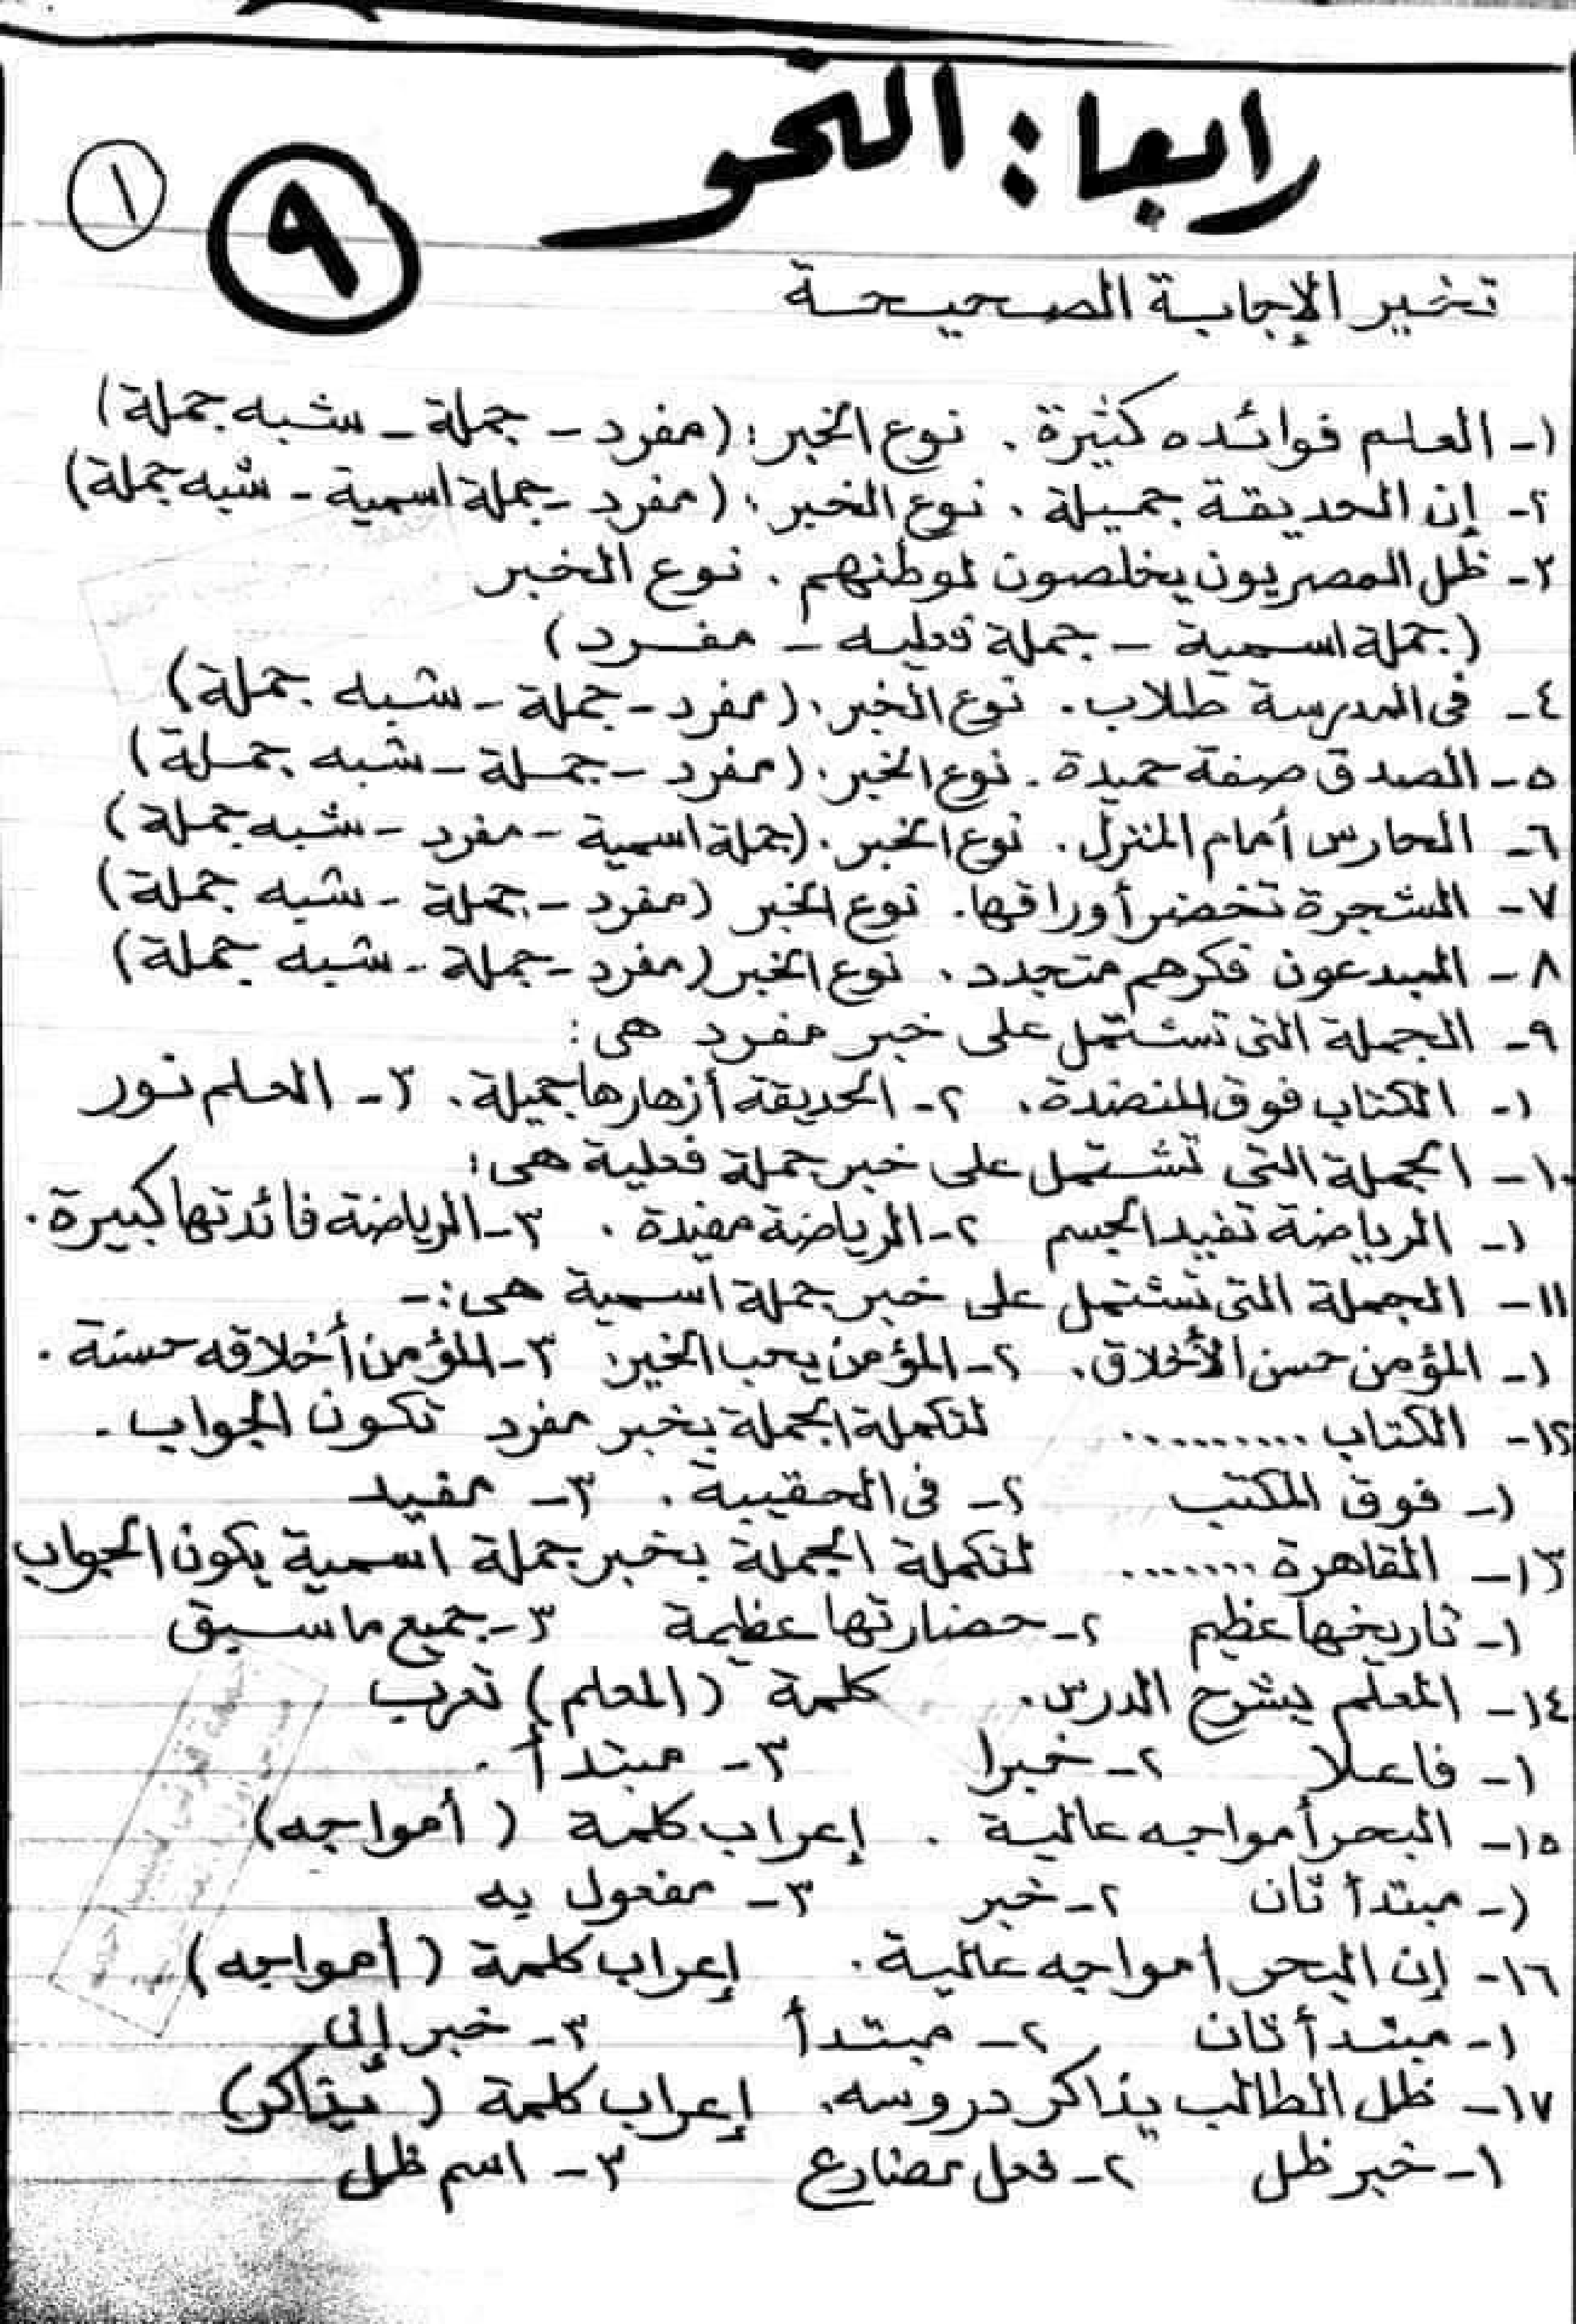 رابعا: النحو
٩
١
تخير الإجابة الصحيحة
١- العلم فوائده كثيرة. نوع الخبر: (مفرد - جملة - شبه جملة)
٢- إن الحديقة جميلة. نوع الخبر: (مفرد - جملة اسمية - شبه جملة)
٣- ظل المصريون يخلصون لوطنهم. نوع الخبر
(جملة اسمية - جملة فعليه - مفرد)
٤- فى المدرسة طلاب. نوع الخبر: (مفرد - جملة - شبه جملة)
٥- الصدق صفة حميدة. نوع الخبر: (مفرد - جملة - شبه جملة)
٦- الحارس أمام المنزل. نوع الخبر: (جملة اسمية - مفرد - شبه جملة)
٧- الشجرة تخضر أوراقها. نوع الخبر (مفرد - جملة - شبه جملة)
٨- المبدعون فكرهم متجدد. نوع الخبر (مفرد - جملة - شبه جملة)
٩- الجملة التى تشتمل على خبر مفرد هى:
١- الكتاب فوق المنضدة. ٢- الحديقة أزهارها جميلة. ٣- العلم نور
١٠- الجملة التى تشتمل على خبر جملة فعلية هى:
١- الرياضة تفيد الجسم ٢- الرياضة مفيدة. ٣- الرياضة فائدتها كبيرة.
١١- الجملة التى تشتمل على خبر جملة اسمية هى:-
١- المؤمن حسن الأخلاق. ٢- المؤمن يحب الخير. ٣- المؤمن أخلاقه حسنة.
١٢- الكتاب .......... لتكملة الجملة بخبر مفرد تكون الجواب.
١- فوق المكتب ٢- فى الحقيبة. ٣- مفيد
١٣- القاهرة ....... لتكملة الجملة بخبر جملة اسمية يكون الجواب
١- تاريخها عظيم ٢- حضارتها عظيمة ٣- جميع ما سبق
١٤- المعلم يشرح الدرس. كلمة (المعلم) تعرب
١- فاعلا ٢- خبرا ٣- مبتدأ.
١٥- البحر أمواجه عالية. إعراب كلمة (أمواجه)
١- مبتدأ ثان ٢- خبر ٣- مفعول به
١٦- إن البحر أمواجه عالية. إعراب كلمة (أمواجه)
١- مبتدأ ثان ٢- مبتدأ ٣- خبر إن
١٧- ظل الطالب يذاكر دروسه. إعراب كلمة (يذاكر)
١- خبر ظل ٢- فعل مضارع ٣- اسم ظل